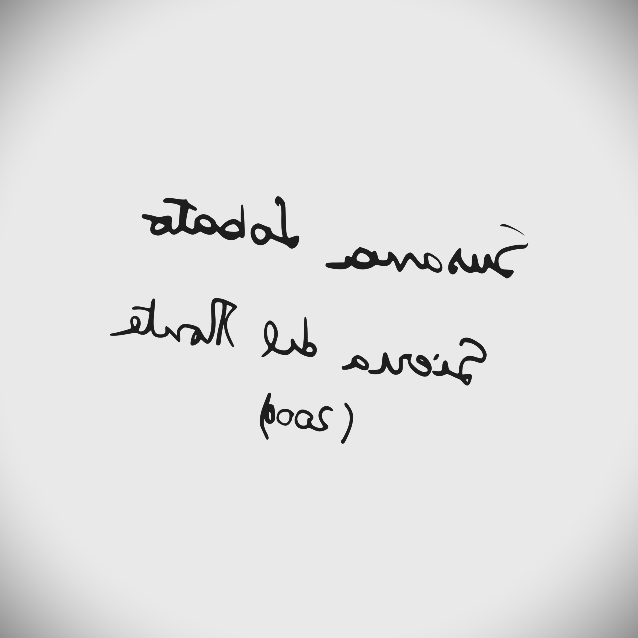 Susana Lobato
Sierra del Norte
(2000)